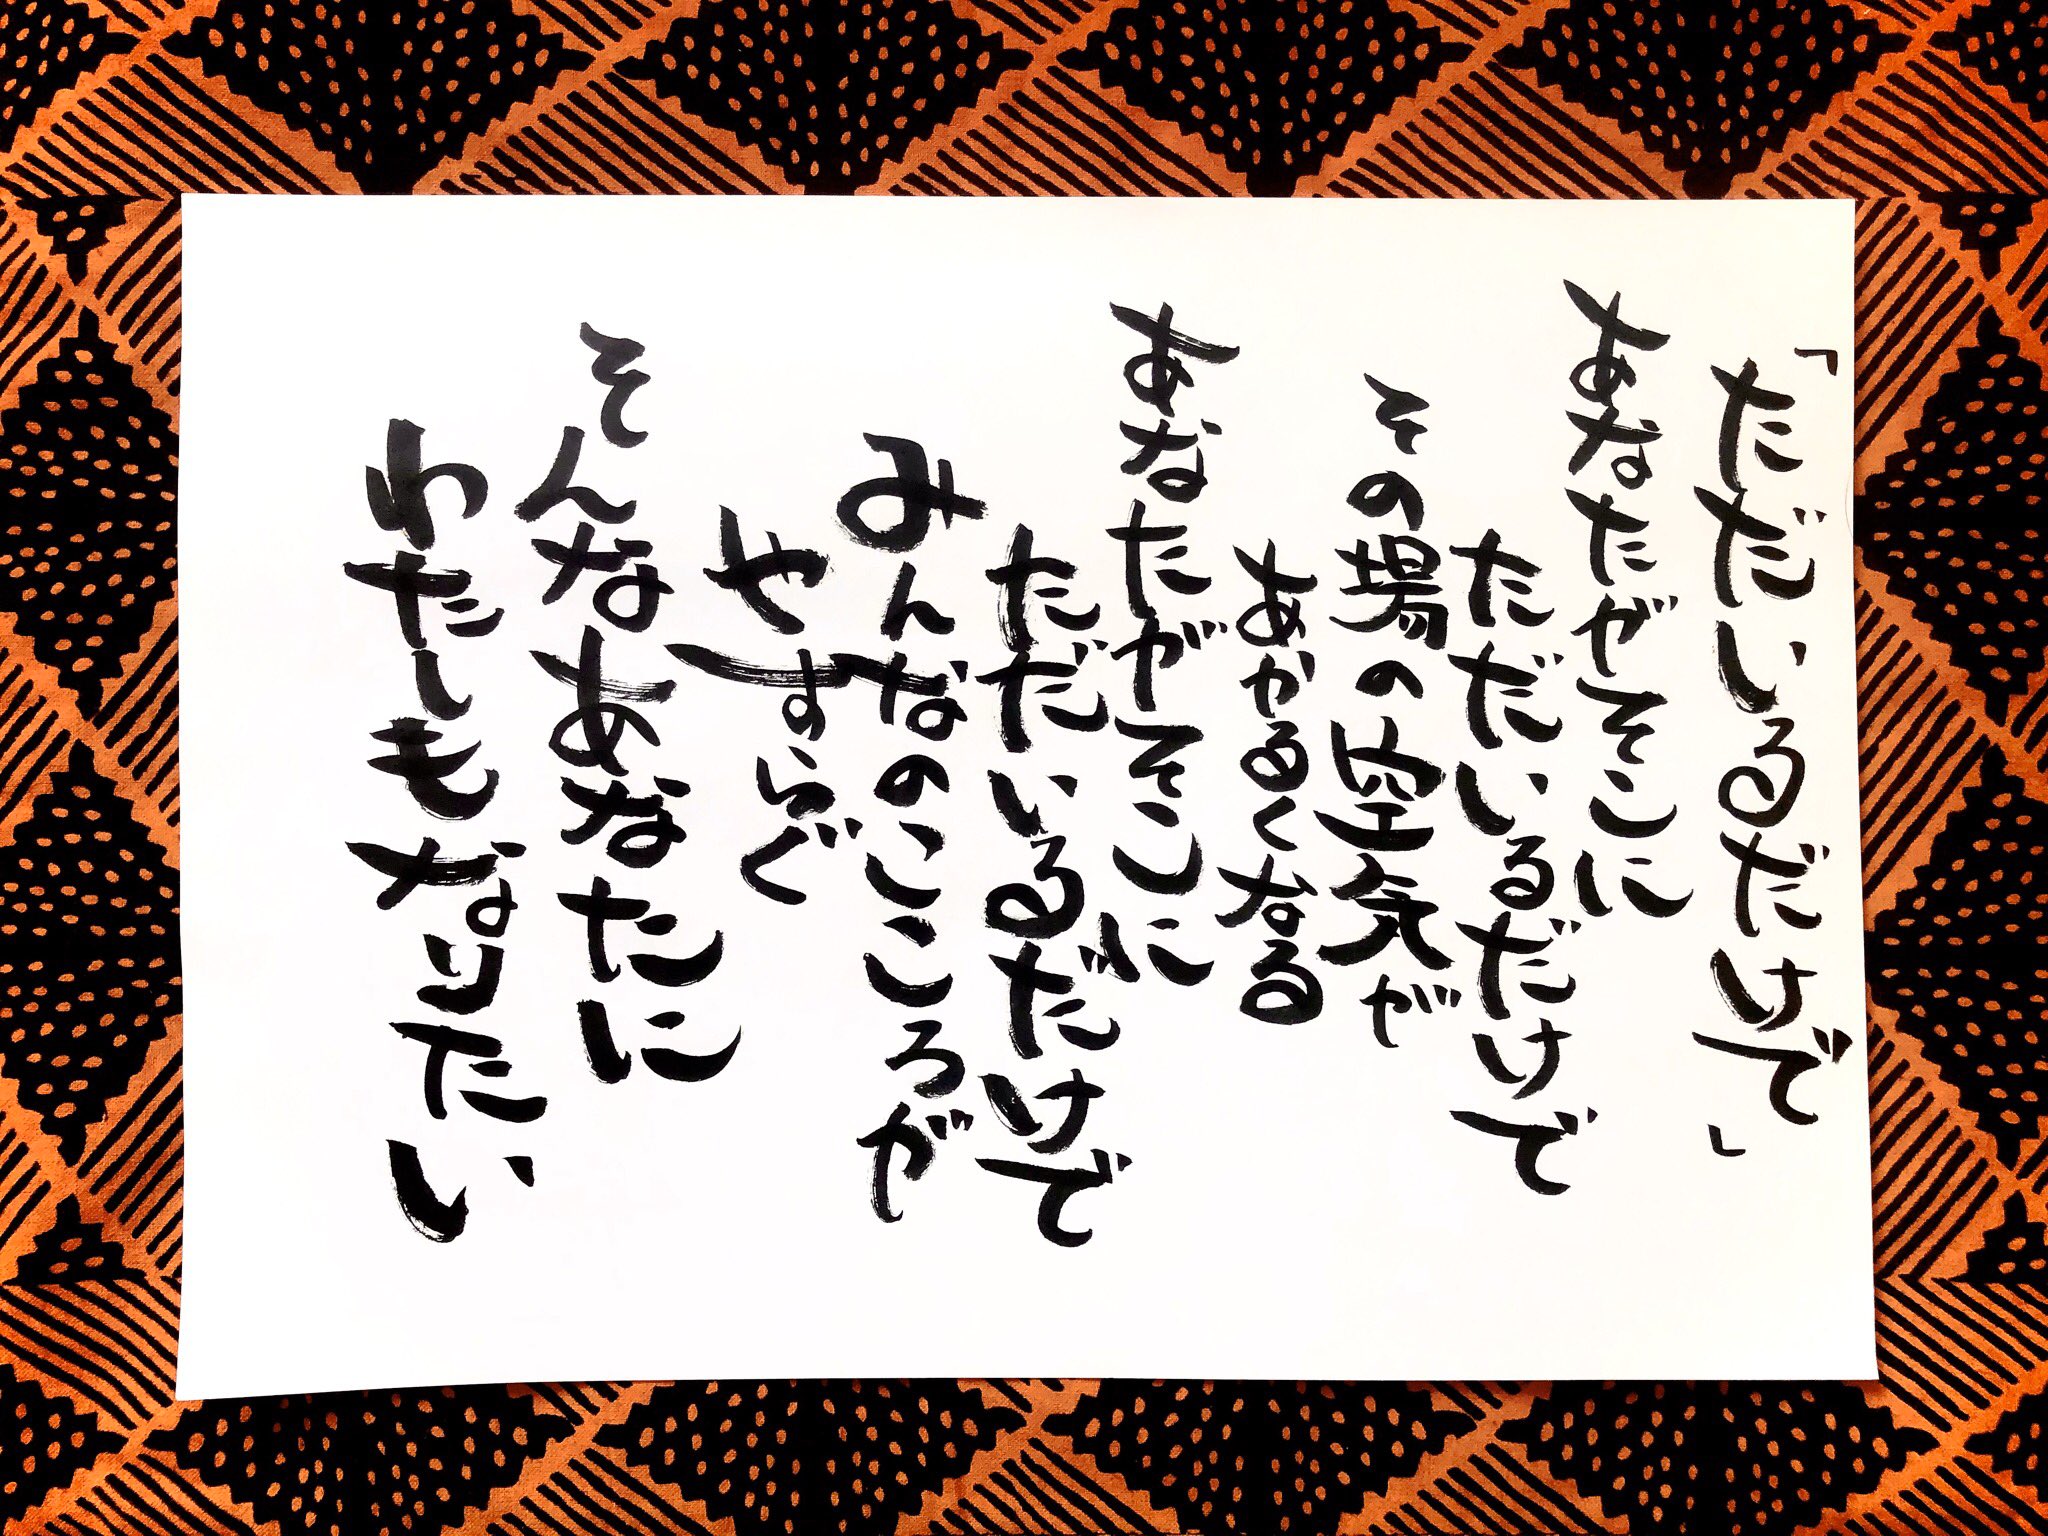 「ただいるだけで」
あなたがそこに
ただいるだけで
その場の空気が
あかるくなる
あなたがそこに
ただいるだけで
みんなのこころが
やすらぐ
そんなあなたに
わたしもなりたい